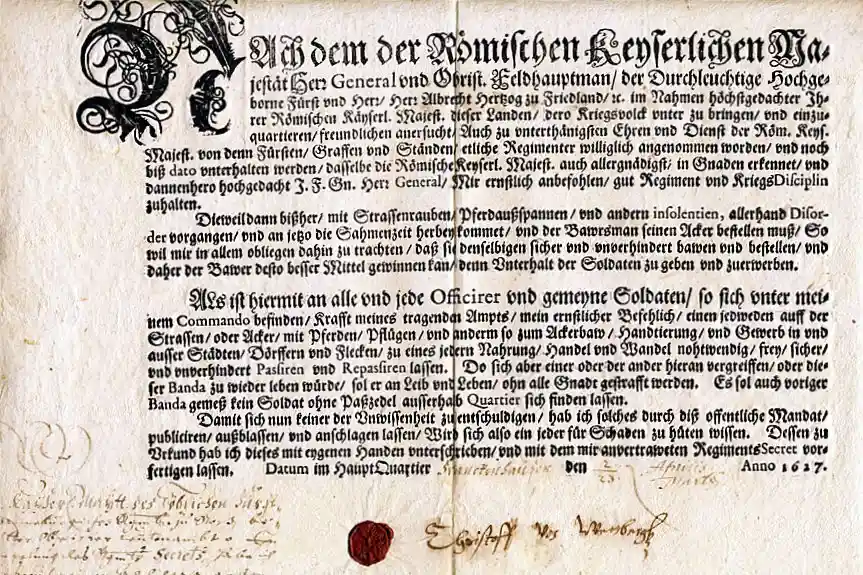 NAch dem der Römischen Keyserlichen Ma-
jestät Herr General vnd Obrist. Feldhauptman/ der Durchleuchtige Hochge-
borne Fürst vnd Herr/ Herr Albrecht Hertzog zu Friedland/ ꝛc. im Nahmen höchstgedachter Ih-
rer Römischen Käyserl. Majest. dieser Landen/ dero Kriegsvolck vnter zu bringen/ vnd einzu-
quartieren/ freundlichen anersucht/ Auch zu vnterthänigsten Ehren vnd Dienst der Röm. Keys.
Majest. von denn Fürsten/ Graffen vnd Ständen/ etliche Regimenter williglich angenommen worden/ vnd noch
biß dato vnterhalten werden/ dasselbe die Römische Keyserl. Majest. auch allergnädigst/ in Gnaden erkennet/ vnd
dannenhero hochgedacht J. F. Gn. Herr General/ Mir ernstlich anbefohlen/ gut Regiment vnd KriegsDisciplin
zuhalten.
Dieweil dann bißher/ mit Strassenrauben/ Pferdaußspannen/ vnd andern insolentien, allerhand Disor-
der vorgangen/ vnd an jetzo die Sahmenzeit herbey kommet/ vnd der Bawrsman seinen Acker bestellen muß/ So
wil mir in allem obliegen dahin zu trachten/ daß sie denselbigen sicher vnd vnverhindert bawen vnd bestellen/ vnd
daher der Bawer desto besser Mittel gewinnen kan/ denn Vnterhalt der Soldaten zu geben vnd zuerwerben.
ALs ist hiermit an alle vnd jede Officirer vnd gemeyne Soldaten/ so sich vnter mei-
nem Commando befinden/ Krafft meines tragenden Ampts/ mein ernstlicher Befehlich/ einen jedweden auff der
Strassen/ oder Acker/ mit Pferden/ Pflügen/ vnd anderm so zum Ackerbaw/ Handtierung/ vnd Gewerb in vnd
ausser Städten/ Dörffern vnd Flecken/ zu eines jedern Nahrung/ Handel vnd Wandel nohtwendig/ frey/ sicher/
vnd vnverhindert Pasiren vnd Repasiren lassen. Do sich aber einer oder der ander hieran vergreiffen/ oder die-
ser Banda zu wieder leben würde/ sol er an Leib vnd Leben/ ohn alle Gnadt gestrafft werden. Es sol auch voriger
Banda gemeß kein Soldat ohne Paßzedel ausserhalb Quartier sich finden lassen.
Damit sich nun keiner der Vnwissenheit zu entschuldigen/ hab ich solches durch diß offentliche Mandat/
publiciren/ außblassen/ vnd anschlagen lassen/ Wird sich also ein jeder für Schaden zu hüten wissen. Dessen zu
Vrkund hab ich dieses mit eygenen Handen vnterschrieben/ vnd mit dem mir anvertraweten RegimentsSecret vor-
fertigen lassen. Datum im HauptQuartier Franckenhausen den Anno 1627.
Christoff von